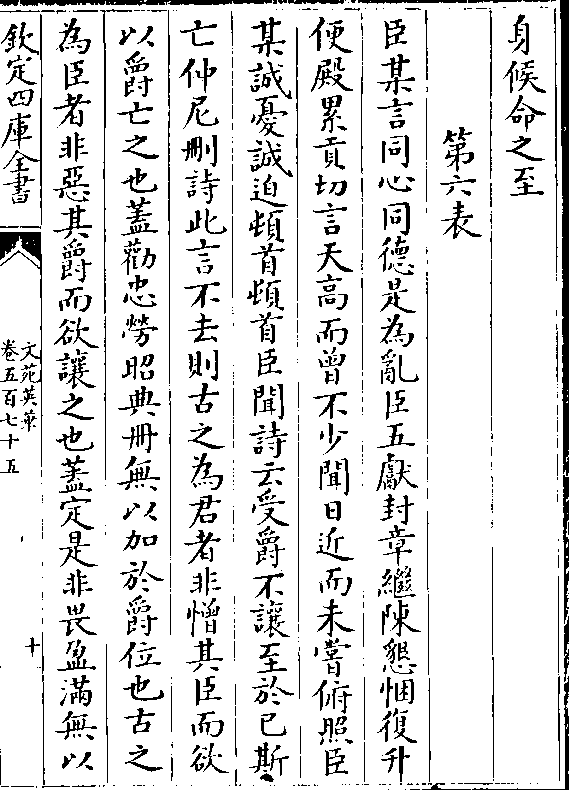 身候命之至
第六表
臣某言同心同德是為亂臣五獻封章繼陳懇悃復升
便殿累貢切言天高而曾不少聞日近而未嘗俯照臣
某誠憂誠迫頓首頓首臣聞詩云受爵不讓至於已斯
亡仲尼刪詩此言不去則古之為君者非憎其臣而欲
以爵亡之也蓋勸忠勞昭典冊無以加於爵位也古之
為臣者非惡其爵而欲讓之也蓋定是非畏盈滿無以
欽定四庫全書
文苑英華
卷五百七十五
十